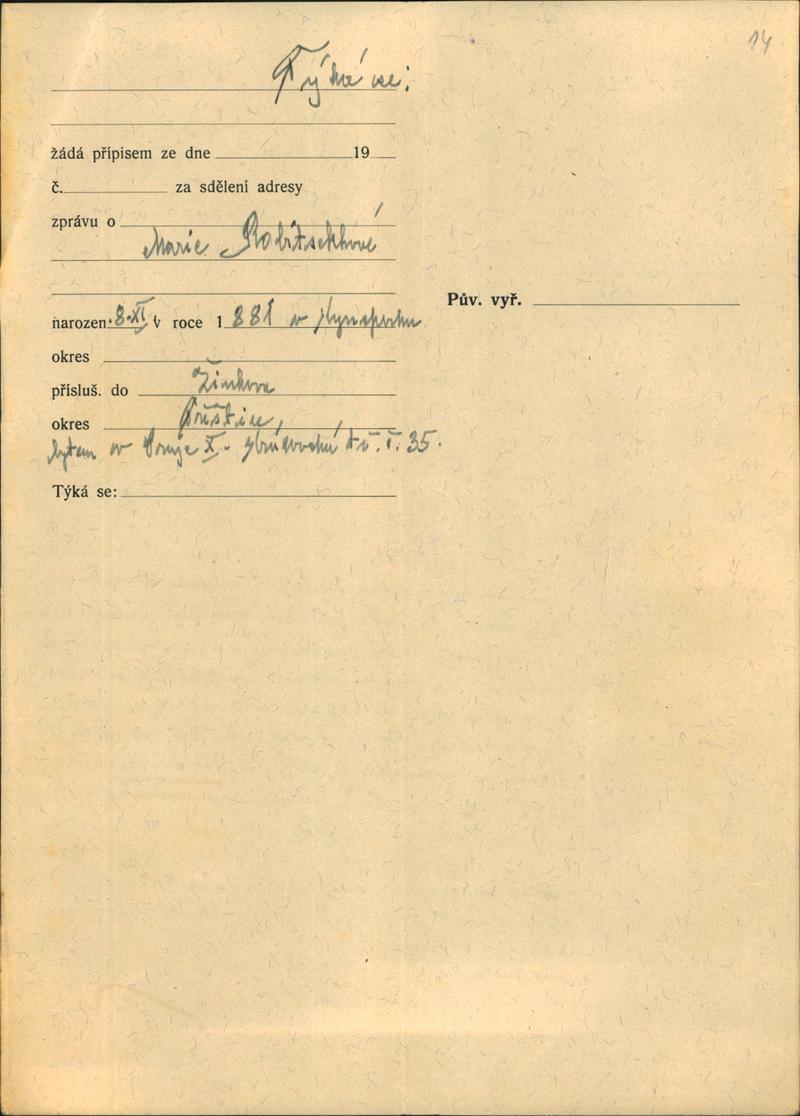 14
Týká se:
žádá přípisem ze dne 19
č. za sdělení adresy
zprávu o
Marie Robitschkové
Pův. vyř.
narozen: 8.XI. v roce 1881 v
okres
přísluš. do Žinkova
okres Přeštice,
bytem v Praze X. tř. č. 35.
Týká se: